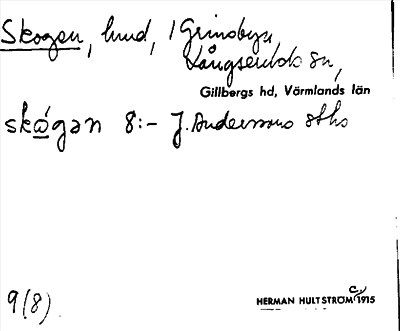 Skogen, hmd, i Grinsbyn,
Långserud sn,
Gillbergs hd, Värmlands län
skògan 8:– J. Anderssons sths
9(8)
HERMAN HULTSTRÖM C:a 1915